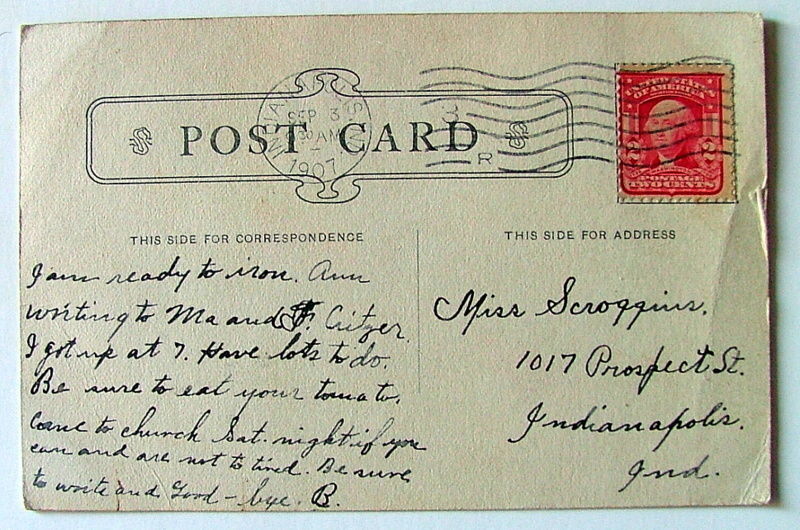 POST CARD
INDIANAPOLIS
SEP 3
30 AM
1907
3
R
UNITED STATES
OF AMERICA
2 2
POSTAGE
TWO CENTS
THIS SIDE FOR CORRESPONDENCE
I am ready to iron. Am
writing to Ma and F. Critzer.
I got up at 7. Have lots to do.
Be sure to eat your tomato.
Come to church Sat. night if you
can and are not to tired. Be sure
to write and Good-bye. B.
THIS SIDE FOR ADDRESS
Miss Scroggins.
1017 Prospect St.
Indianapolis.
Ind.